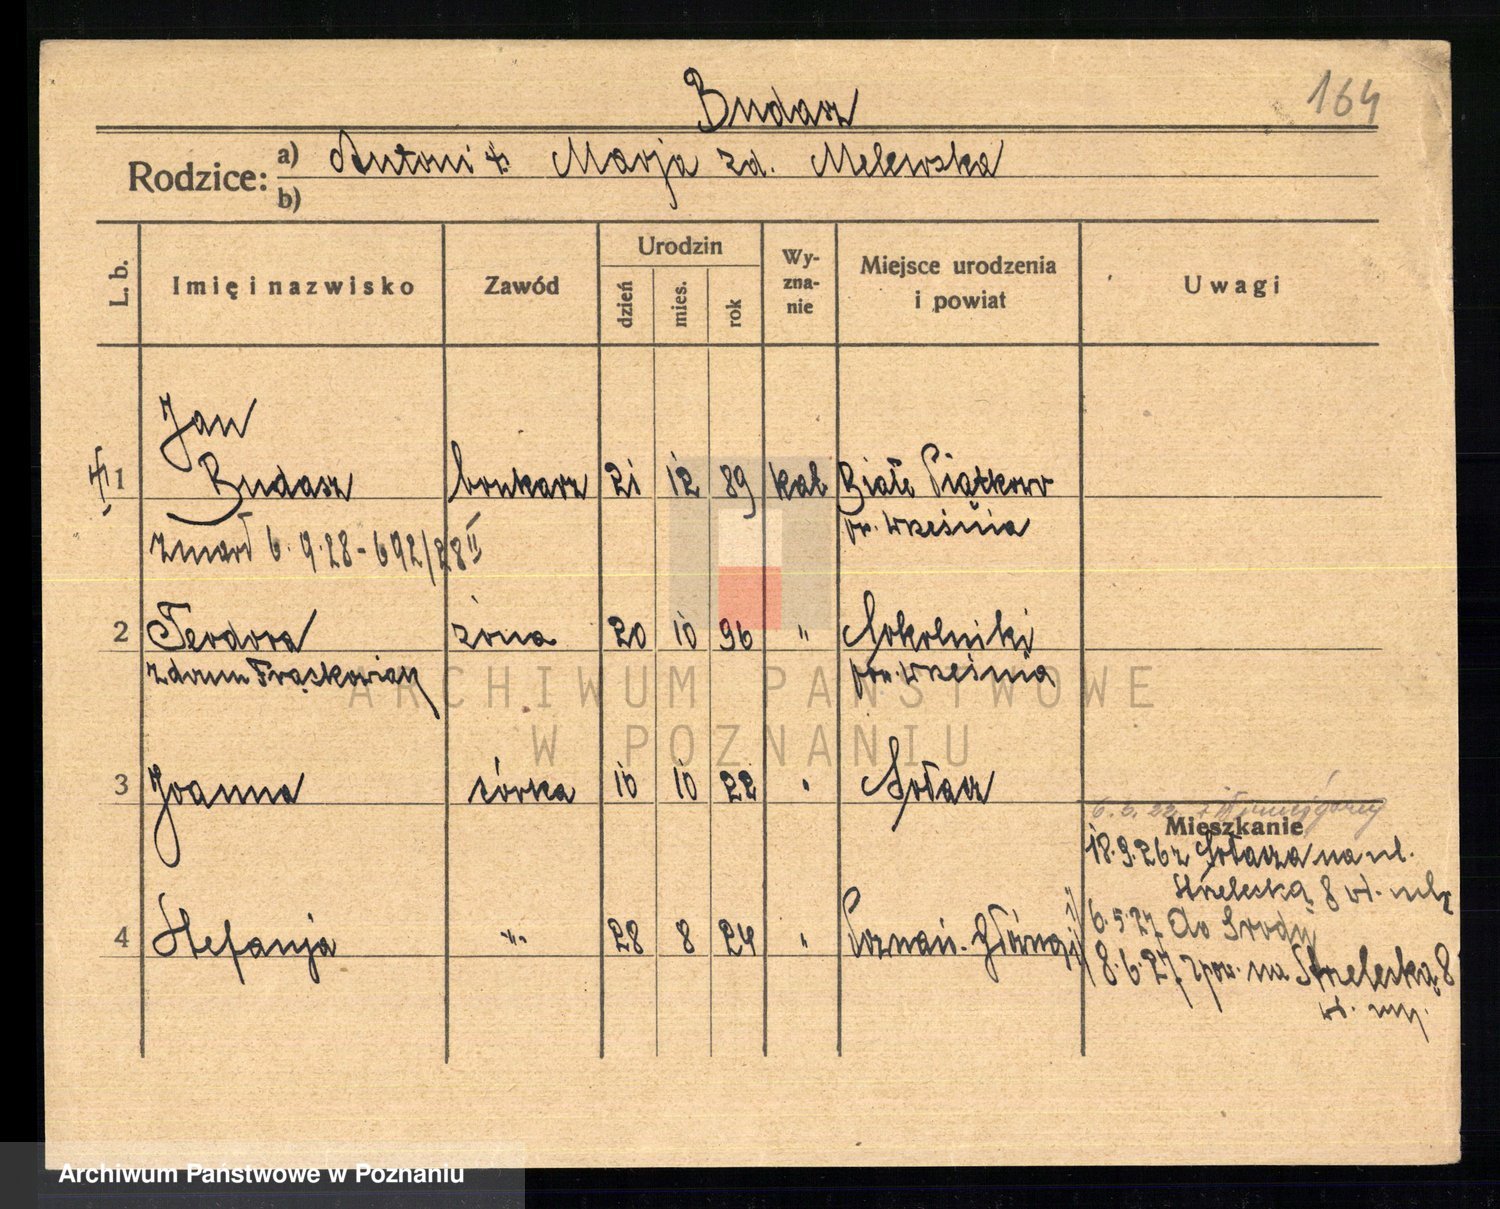 164
Budasz
Rodzice: a) Antoni Marja zd. Melewska
b)
L. b.
Imię i nazwisko
Zawód
Urodzin
dzień
mies.
rok
Wy-
zna-
nie
Miejsce urodzenia
i powiat
Uwagi
Jan
1 Budasz brukarz 21 12 89 kat Białe Piątkowo
pow. Września
zmarł 6.9.28 - 692/28 II
2 Teodora żona 20 10 96 " Sokolniki
z domu Frąckowiak pow. Września
3 Joanna córka 10 10 22 " Sołacz
Mieszkanie
18.9.26 z Sołacza na ul.
Strzelecką 8
4 Stefanja " 28 8 24 " Poznań
6.5.27 do Środy
8.6.27 na Strzelecką 8
ARCHIWUM PAŃSTWOWE
W POZNANIU
Archiwum Państwowe w Poznaniu